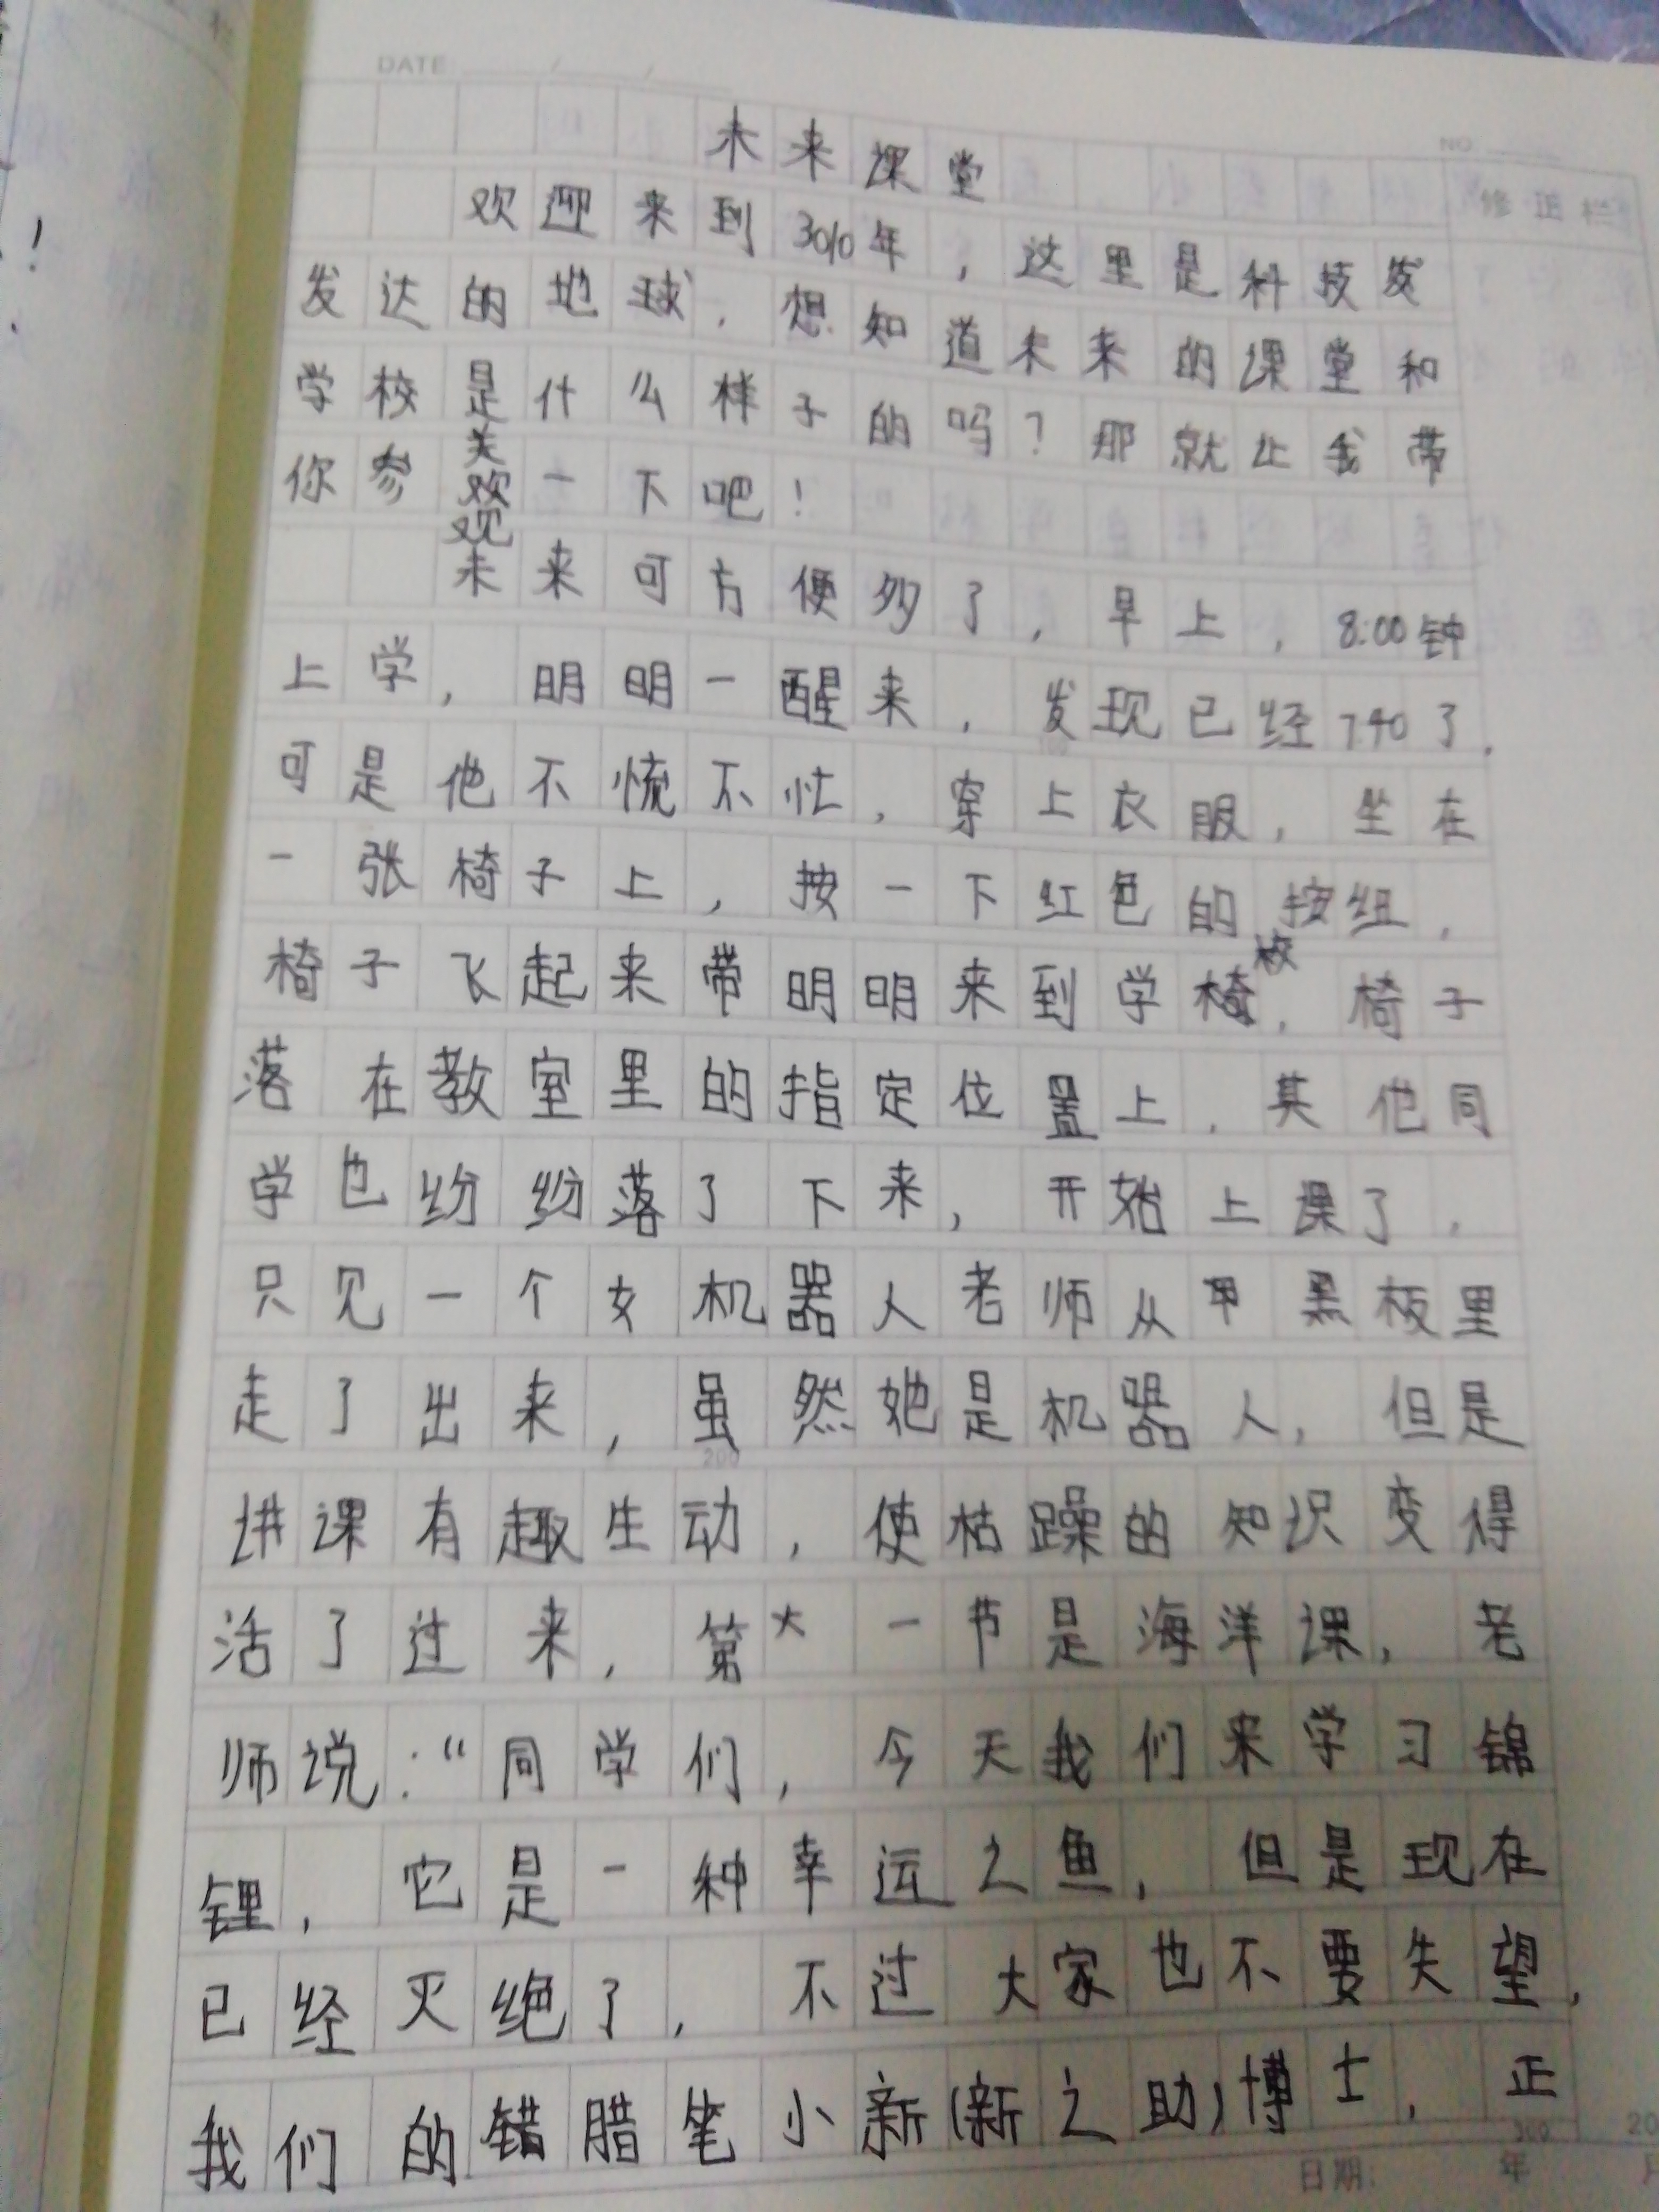 DATE
NO
修正栏
未来课堂
欢迎来到3010年，这里是科技发
发达的地球，想知道未来的课堂和
学校是什么样子的吗？那就让我带
你参观一下吧！
未来可方便多了，早上，8:00钟
上学，明明一醒来，发现已经7:40了，
可是他不慌不忙，穿上衣服，坐在
一张椅子上，按一下红色的按组，
椅子飞起来带明明来到学校，椅子
落在教室里的指定位置上，其他同
学也纷纷落了下来，开始上课了，
只见一个女机器人老师从甲黑板里
走了出来，虽然她是机器人，但是
讲课有趣生动，使枯躁的知识变得
活了过来，第一节是海洋课，老
师说：“同学们，今天我们来学习锦
锂，它是一种幸运之鱼，但是现在
已经灭绝了，不过大家也不要失望，
我们的错腊笔小新(新之助)博士，正
200
300
日期： 年 月